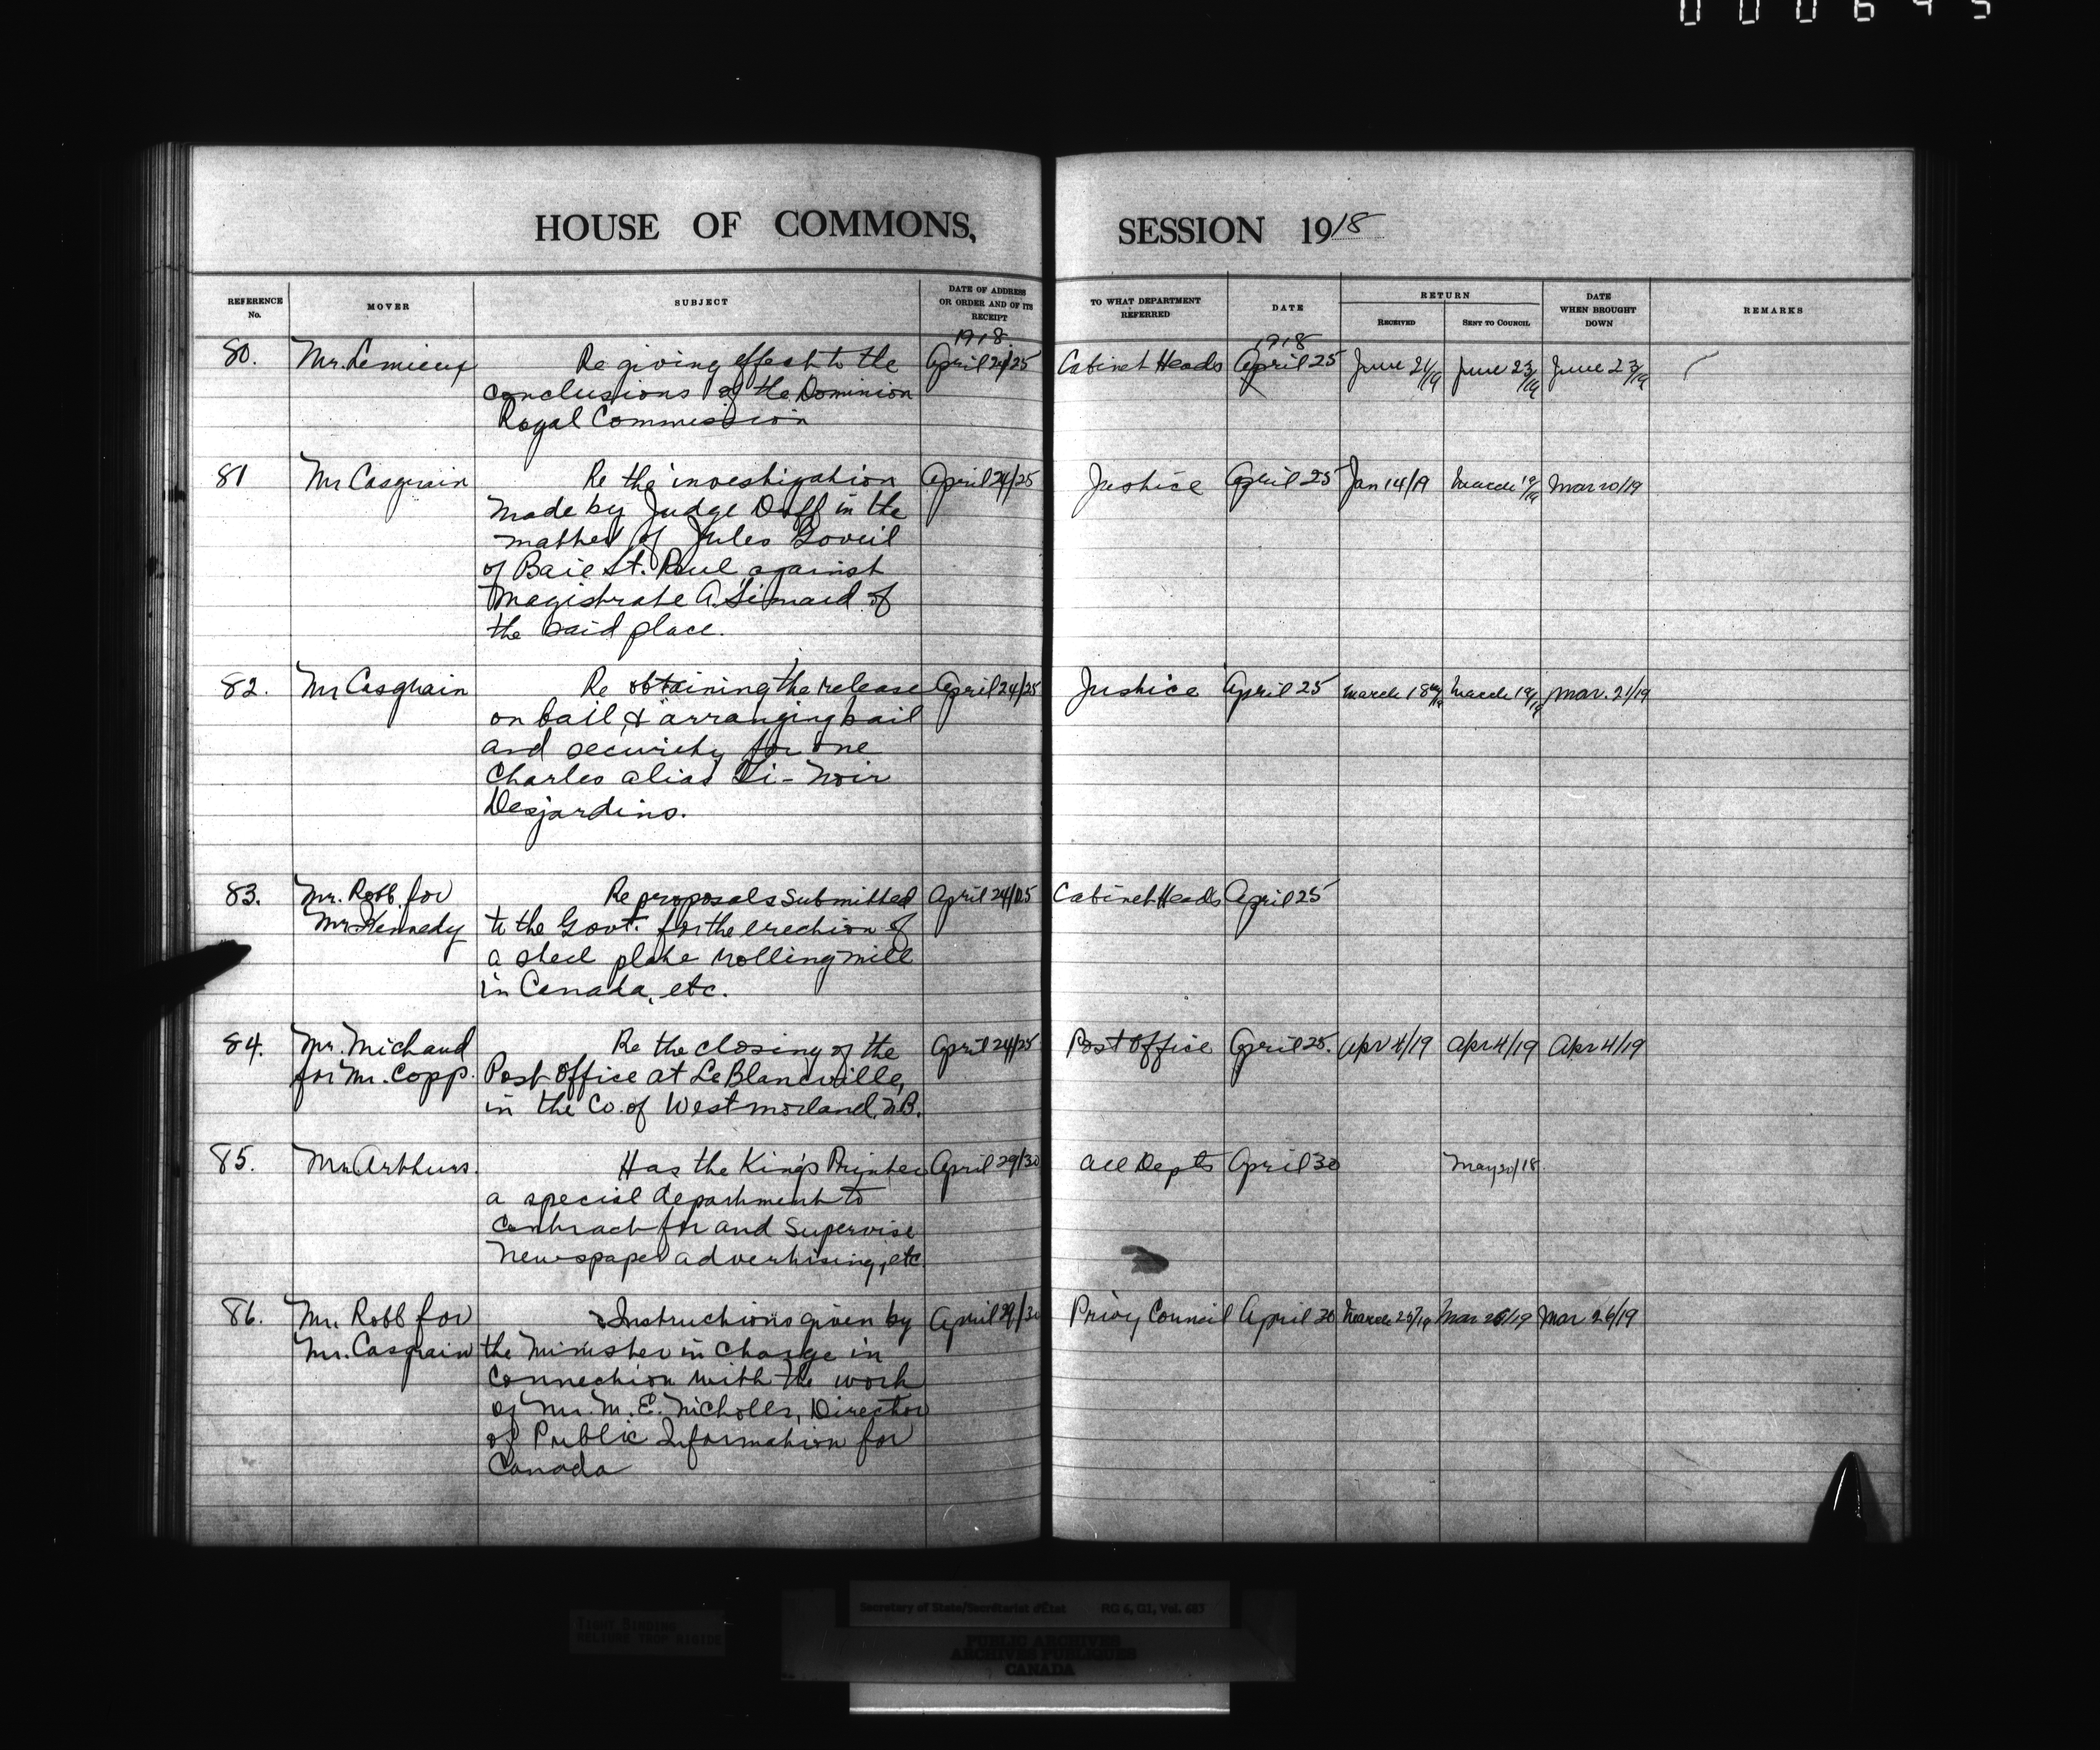 000695
HOUSE OF COMMONS, SESSION 1918
REFERENCE No. MOVER SUBJECT DATE OF ADDRESS OR ORDER AND OF ITS RECEIPT TO WHAT DEPARTMENT REFERRED DATE RETURN RECEIVED SENT TO COUNCIL DATE WHEN BROUGHT DOWN REMARKS
1918. 1918
80. Mr. Lemieux Re giving effect to the April 24/25 Cabinet Heads April 25 June 21/19 June 23/19 June 23/19
conclusions of the Dominion
Royal Commission
81 Mr Casgrain Re the investigation April 24/25 Justice April 25 Jan 14/19 March 19/19 Mar 20/19
made by Judge Duff in the
matter of Jules Goveil
of Baie St. Paul against
Magistrate A. Simard of
the said place.
82. Mr Casgrain Re obtaining the release April 24/25 Justice April 25 March 18/19 March 19/19 Mar. 21/19
on bail & arranging bail
and security for one
Charles alias Ti-Noir
Desjardins.
83. Mr. Robb for Re proposals submitted April 24/25 Cabinet Heads April 25
Mr Kennedy to the Govt. for the erection of
a steel plate rolling mill
in Canada, etc.
84. Mr. Michaud Re the closing of the April 24/25 Post Office April 25. Apr 4/19 Apr 4/19 Apr 4/19
for Mr. Copp. Post Office at LeBlancville,
in the Co. of Westmorland, N.B.
85. Mr. Arthurs. Has the King's Printer April 29/30 All Depts April 30 May 20/18
a special department to
contract for and supervise
newspaper advertising, etc
86. Mr. Robb for Instructions given by April 29/30 Privy Council April 30 March 25/19 Mar 26/19 Mar 26/19
Mr. Casgrain the Minister in charge in
connection with the work
of Mr. M. E. Nicholls, Director
of Public Information for
Canada
Secretary of State/Secrétariat d'État RG 6, G1, Vol. 683
TIGHT BINDING
RELIURE TROP RIGIDE
PUBLIC ARCHIVES
ARCHIVES PUBLIQUES
CANADA